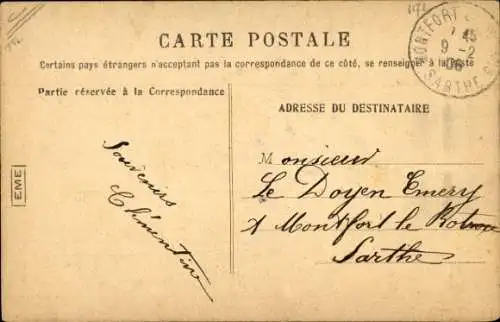 CARTE POSTALE
Certains pays étrangers n'acceptant pas la correspondance de ce côté, se renseigner à la Poste
Partie réservée à la Correspondance
ADRESSE DU DESTINATAIRE
MONTFORT
45
9 -2
06
SARTHE
EME
Souvenirs
Clémentine
Monsieur
Le Doyen Emery
à Montfort le Rotrou
Sarthe